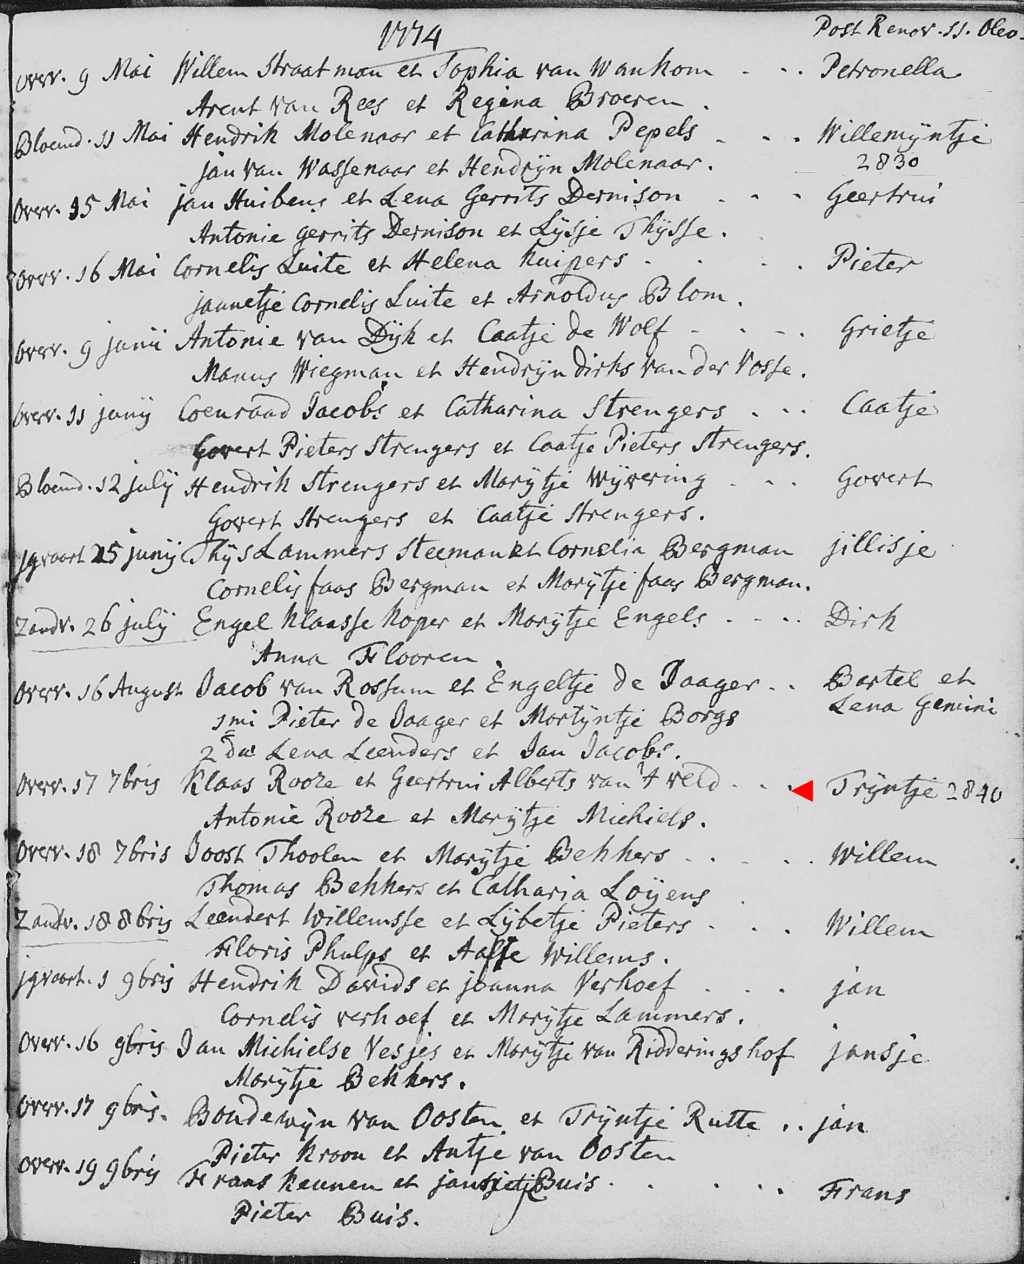 1774
Post Renov. 11. Oleo.
Overv. 9 Mai Willem Straatman et Sophia van Wankom - - - Petronella
Arent van Rees et Regina Broeren.
Bloemd. 11 Mai Hendrik Molenaar et Catharina Pepels - - - Willemÿntje
Jan van Wassenaar et Hendrÿn Molenaar. 2830
Overv. 15 Mai jan Huibens et Lena Gerrits Dernison - - - Geertrui
Antonie gerrits Dernison et Lÿsje Thÿsse.
Overv. 16 Mai Cornelis Luite et Helena Kuipers - - - Pieter
jannetje Cornelis Luite et Arnoldus Blom.
Overv. 9 junii Antonie van Dÿk et Caatje de Wolf - - - Grietje
Manus Wiegman et Hendrÿn dirks van der Vosse.
Overv. 11 junÿ Coenraad Jacobs et Catharina Strengers - - - Caatje
Govert Pieters Strengers et Caatje Pieters Strengers.
Bloemd. 12 julÿ Hendrik Strengers et Marÿtje Wÿvering - - - Govert
Govert Strengers et Caatje Strengers.
jgvaart 25 junÿ Thÿs Lammers Steeman et Cornelia Bergman jillisje
Cornelis faas Bergman et Marÿtje faas Bergman.
Zandv. 26 julÿ Engel Klaasse Koper et Marÿtje Engels - - - Dirk
Anna Flooren.
Overv. 16 August Jacob van Rossum et Engeltje de Jaager - - Bartel et
Lena Gemini
1mi Pieter de Jaager et Martÿntje Borgs
2di Lena Leenders et Jan Jacobs.
Overv. 17 7bris Klaas Rooze et Geertrui Alberts van 't veld - - - Trÿntje 2840
Antonie Rooze et Marÿtje Michiels.
Overv. 18 7bris Joost Thoolen et Marÿtje Bekkers - - - Willem
Thomas Bekkers et Catharia Loÿens
Zandv. 18 8bris Leendert Willemsse et Lÿbetje Pieters - - - Willem
Floris Phulps et Aaltje Willems.
jgvaart. 1 9bris Hendrik Davids et joanna Verhoef - - - jan
Cornelis verhoef et Marÿtje Lammers.
Overv. 16 9bris Jan Michielse Vesjes et Marÿtje van Ridderingshof jansje
Marÿtje Bekkers.
Overv. 17 9bris. Boudewÿn van Oosten et Trÿntje Rutte .. jan
Pieter Kroon et Antje van Oosten
Overv. 19 9bris Frans Keunen et jansje Buis - - - Frans
Pieter Buis.